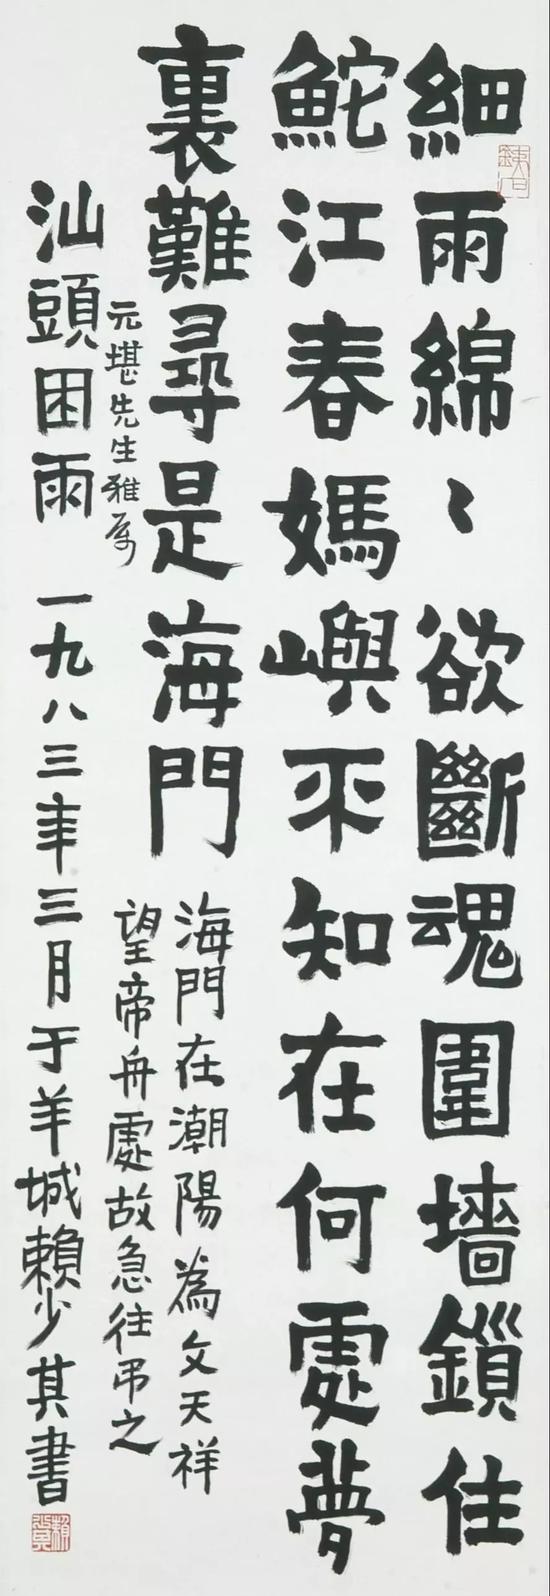 細雨綿〻欲斷魂圍墻鎖住
鮀江春媽嶼不知在何處夢
裏難尋是海門
海門在潮陽為文天祥
望帝舟處故急往吊之
元堪先生雅属
汕頭困雨 一九八三年三月于羊城賴少其書